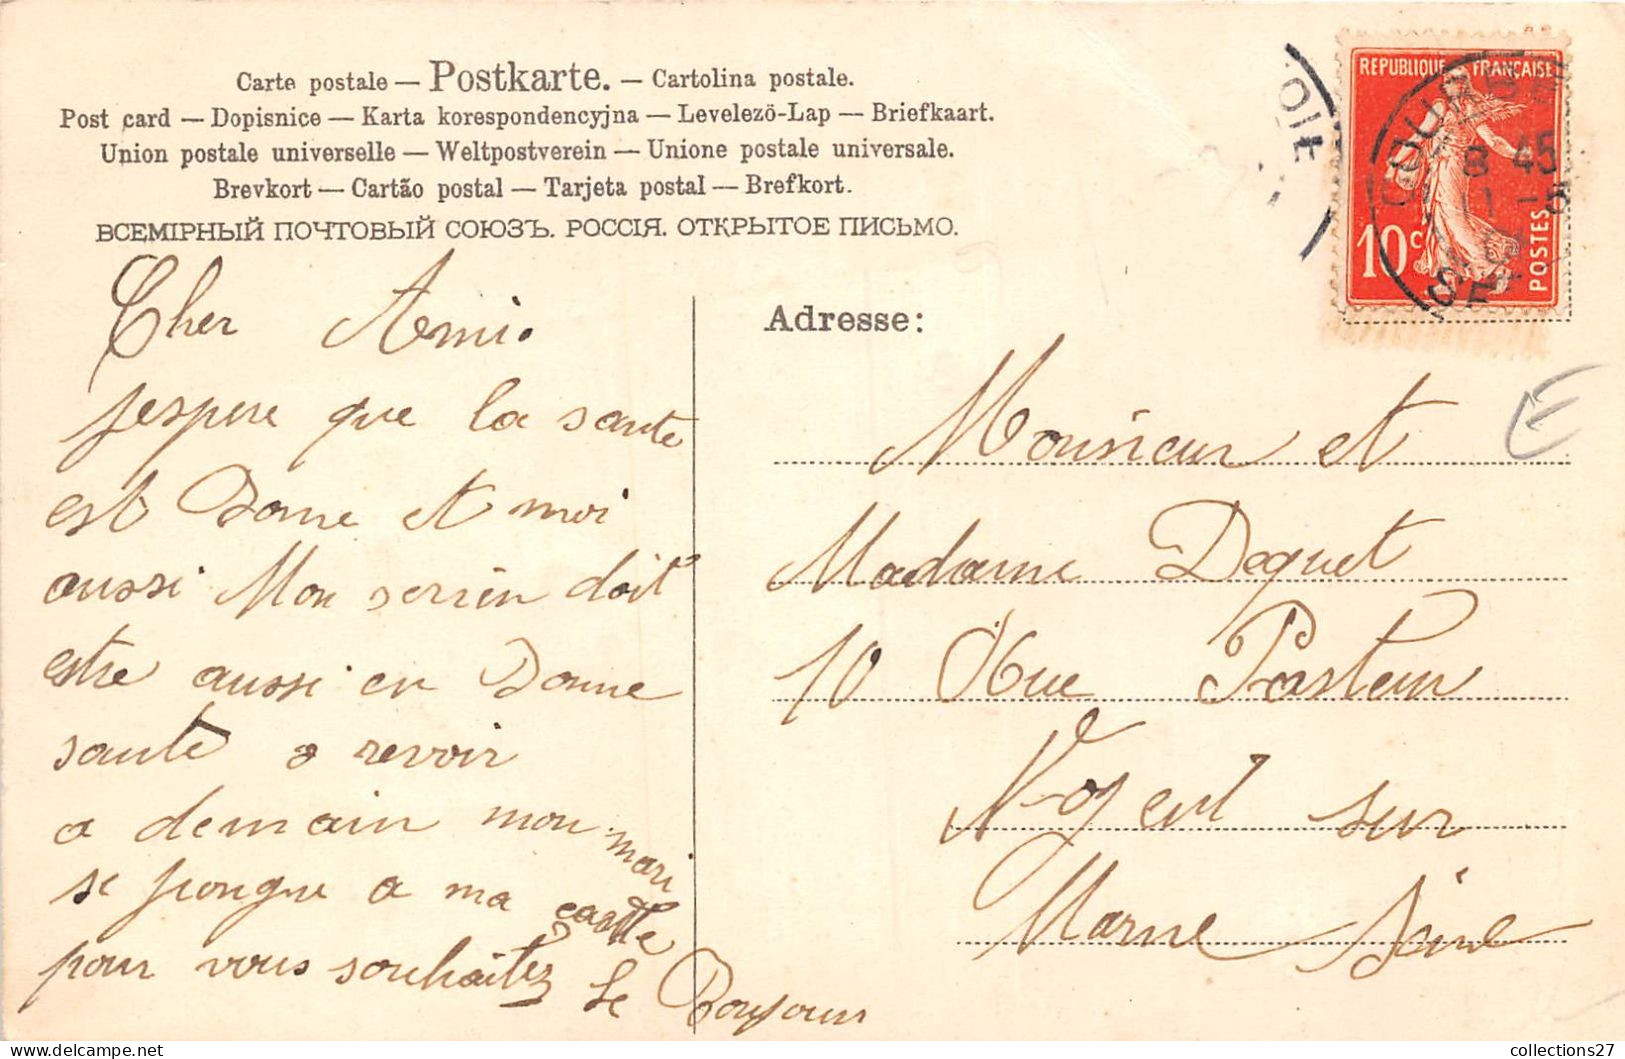 Carte postale — Postkarte. — Cartolina postale.
Post card — Dopisnice — Karta korespondencyjna — Levelező-Lap — Briefkaart.
Union postale universelle — Weltpostverein — Unione postale universale.
Brevkort — Cartão postal — Tarjeta postal — Brefkort.
ВСЕМІРНЫЙ ПОЧТОВЫЙ СОЮЗЪ. РОССІЯ. ОТКРЫТОЕ ПИСЬМО.
REPUBLIQUE FRANÇAISE
10c
POSTES
COURBE
8 45
11 - 5
SEINE
OIE
Cher Ami.
jespere que la sante
est Bonne et moi
aussi Mon serrien doit
estre aussi en Bonne
sante a revoir
a demain mon mari
se jiongne a ma cartte
pour vous souhaitez le Bonjour
Adresse:
Monsieur et
Madame Dequet
10 Rue Pasteur
Nogent sur
Marne Seine
collections27